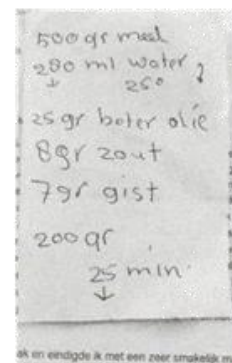 500 gr meel
280 ml water
260
25 gr boter olie
8gr zout
7gr gist
200 gr
25 min
ak en eindigde ik met een zeer smakelijk m